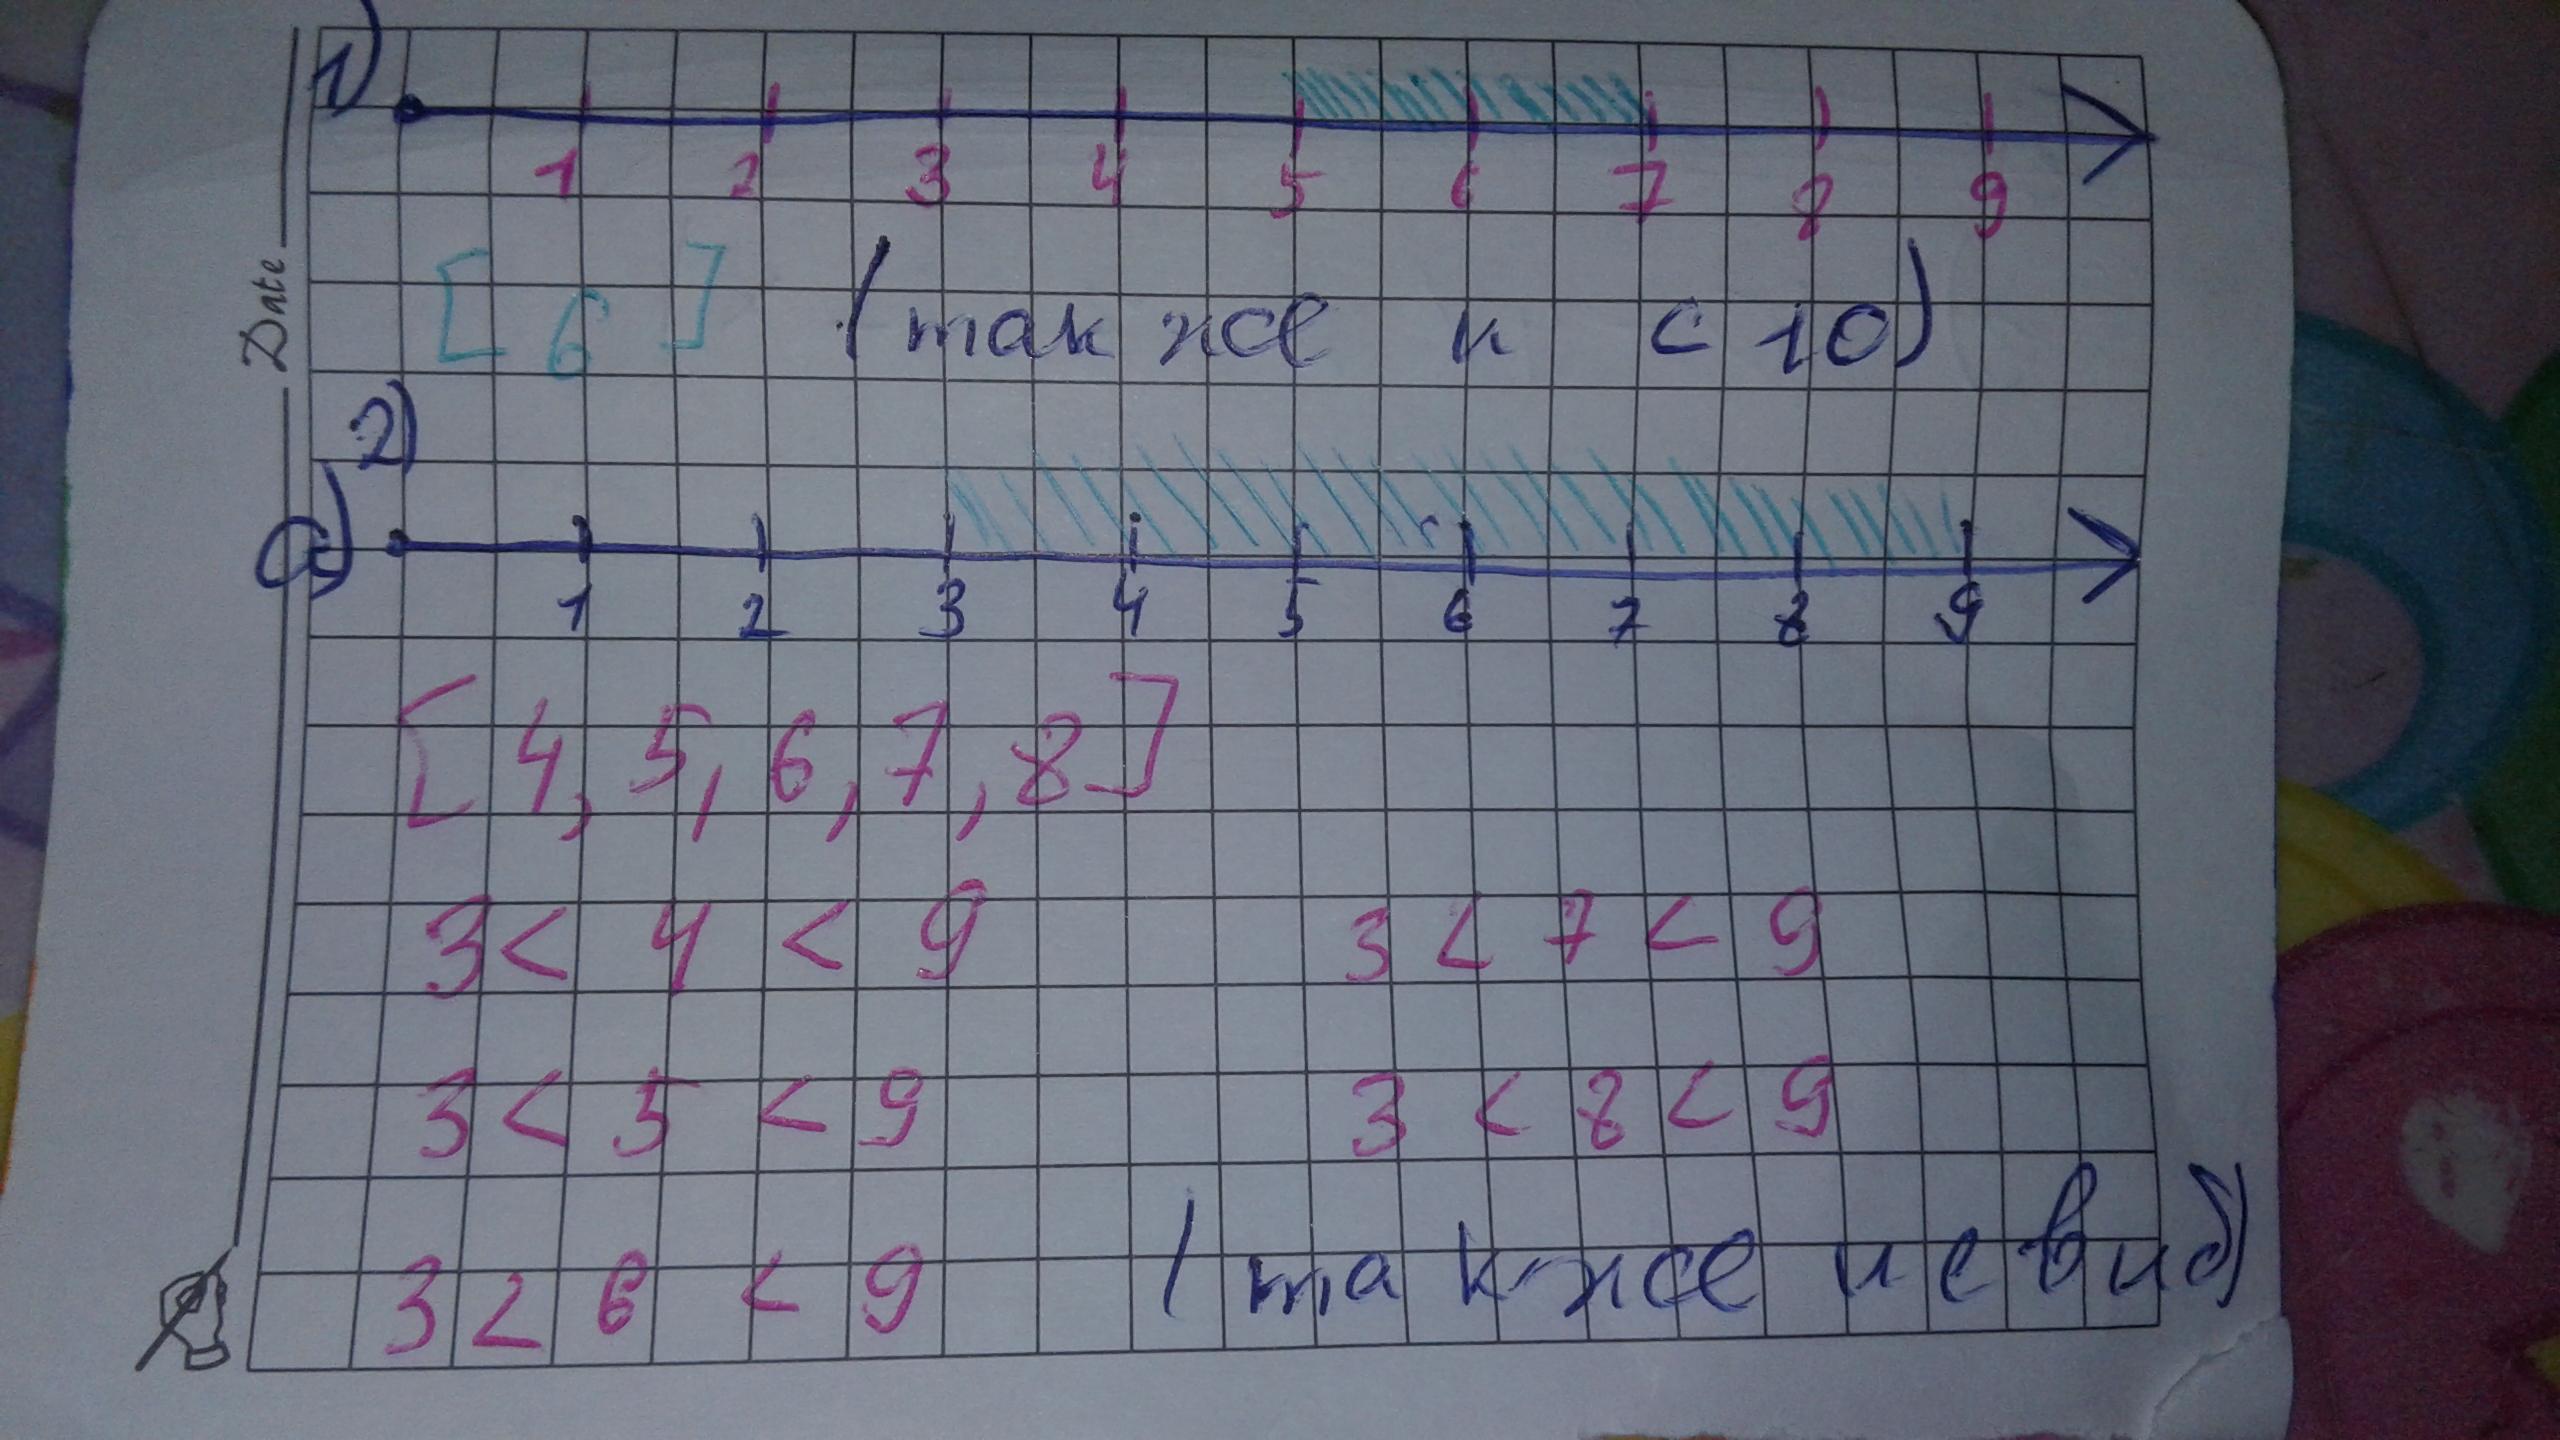 1)
1 2 3 4 5 6 7 8 9
Date
[ 6 ] (так же и с 10)
2)
а)
1 2 3 4 5 6 7 8 9
[ 4, 5, 6, 7, 8 ]
3 < 4 < 9 3 < 7 < 9
3 < 5 < 9 3 < 8 < 9
3 < 6 < 9 (так же и с в и б)